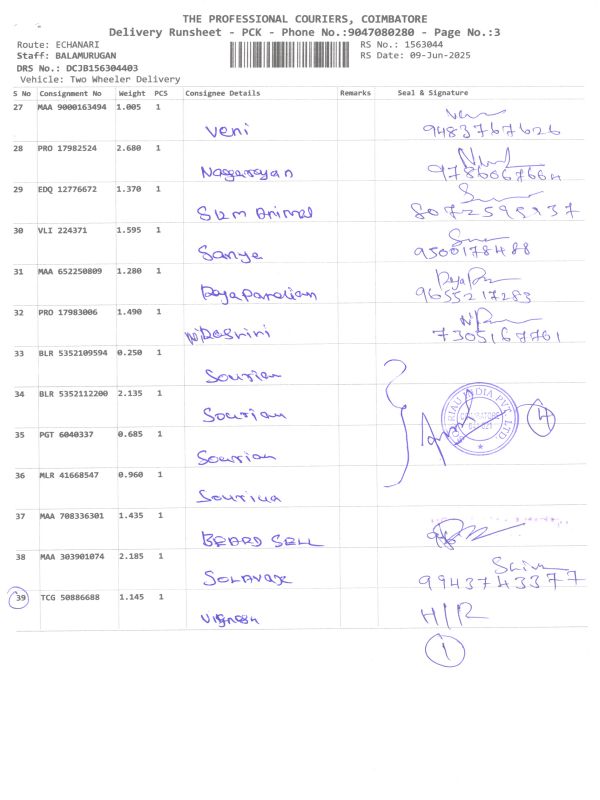 THE PROFESSIONAL COURIERS, COIMBATORE
Delivery Runsheet - PCK - Phone No.:9047080280 - Page No.:3
Route: ECHANARI
RS No.: 1563044
Staff: BALAMURUGAN
RS Date: 09-Jun-2025
DRS No.: DCJB156304403
Vehicle: Two Wheeler Delivery
S No Consignment No Weight PCS Consignee Details Remarks Seal & Signature
27 MAA 9000163494 1.005 1
Veni 9483767626
28 PRO 17982524 2.680 1
29 EDQ 12776672 1.370 1
30 VLI 224371 1.595 1
Sanye 9500178488
31 MAA 652250809 1.280 1
9655217283
32 PRO 17983006 1.490 1
7305167761
33 BLR 5352109594 0.250 1
Sourian
34 BLR 5352112200 2.135 1
Sourian 4
35 PGT 6040337 0.685 1
Sourian
36 MLR 41668547 0.960 1
37 MAA 708336301 1.435 1
BEARD SELL
38 MAA 303901074 2.185 1
9943743377
39 TCG 50886688 1.145 1
Vignesh H/R
1